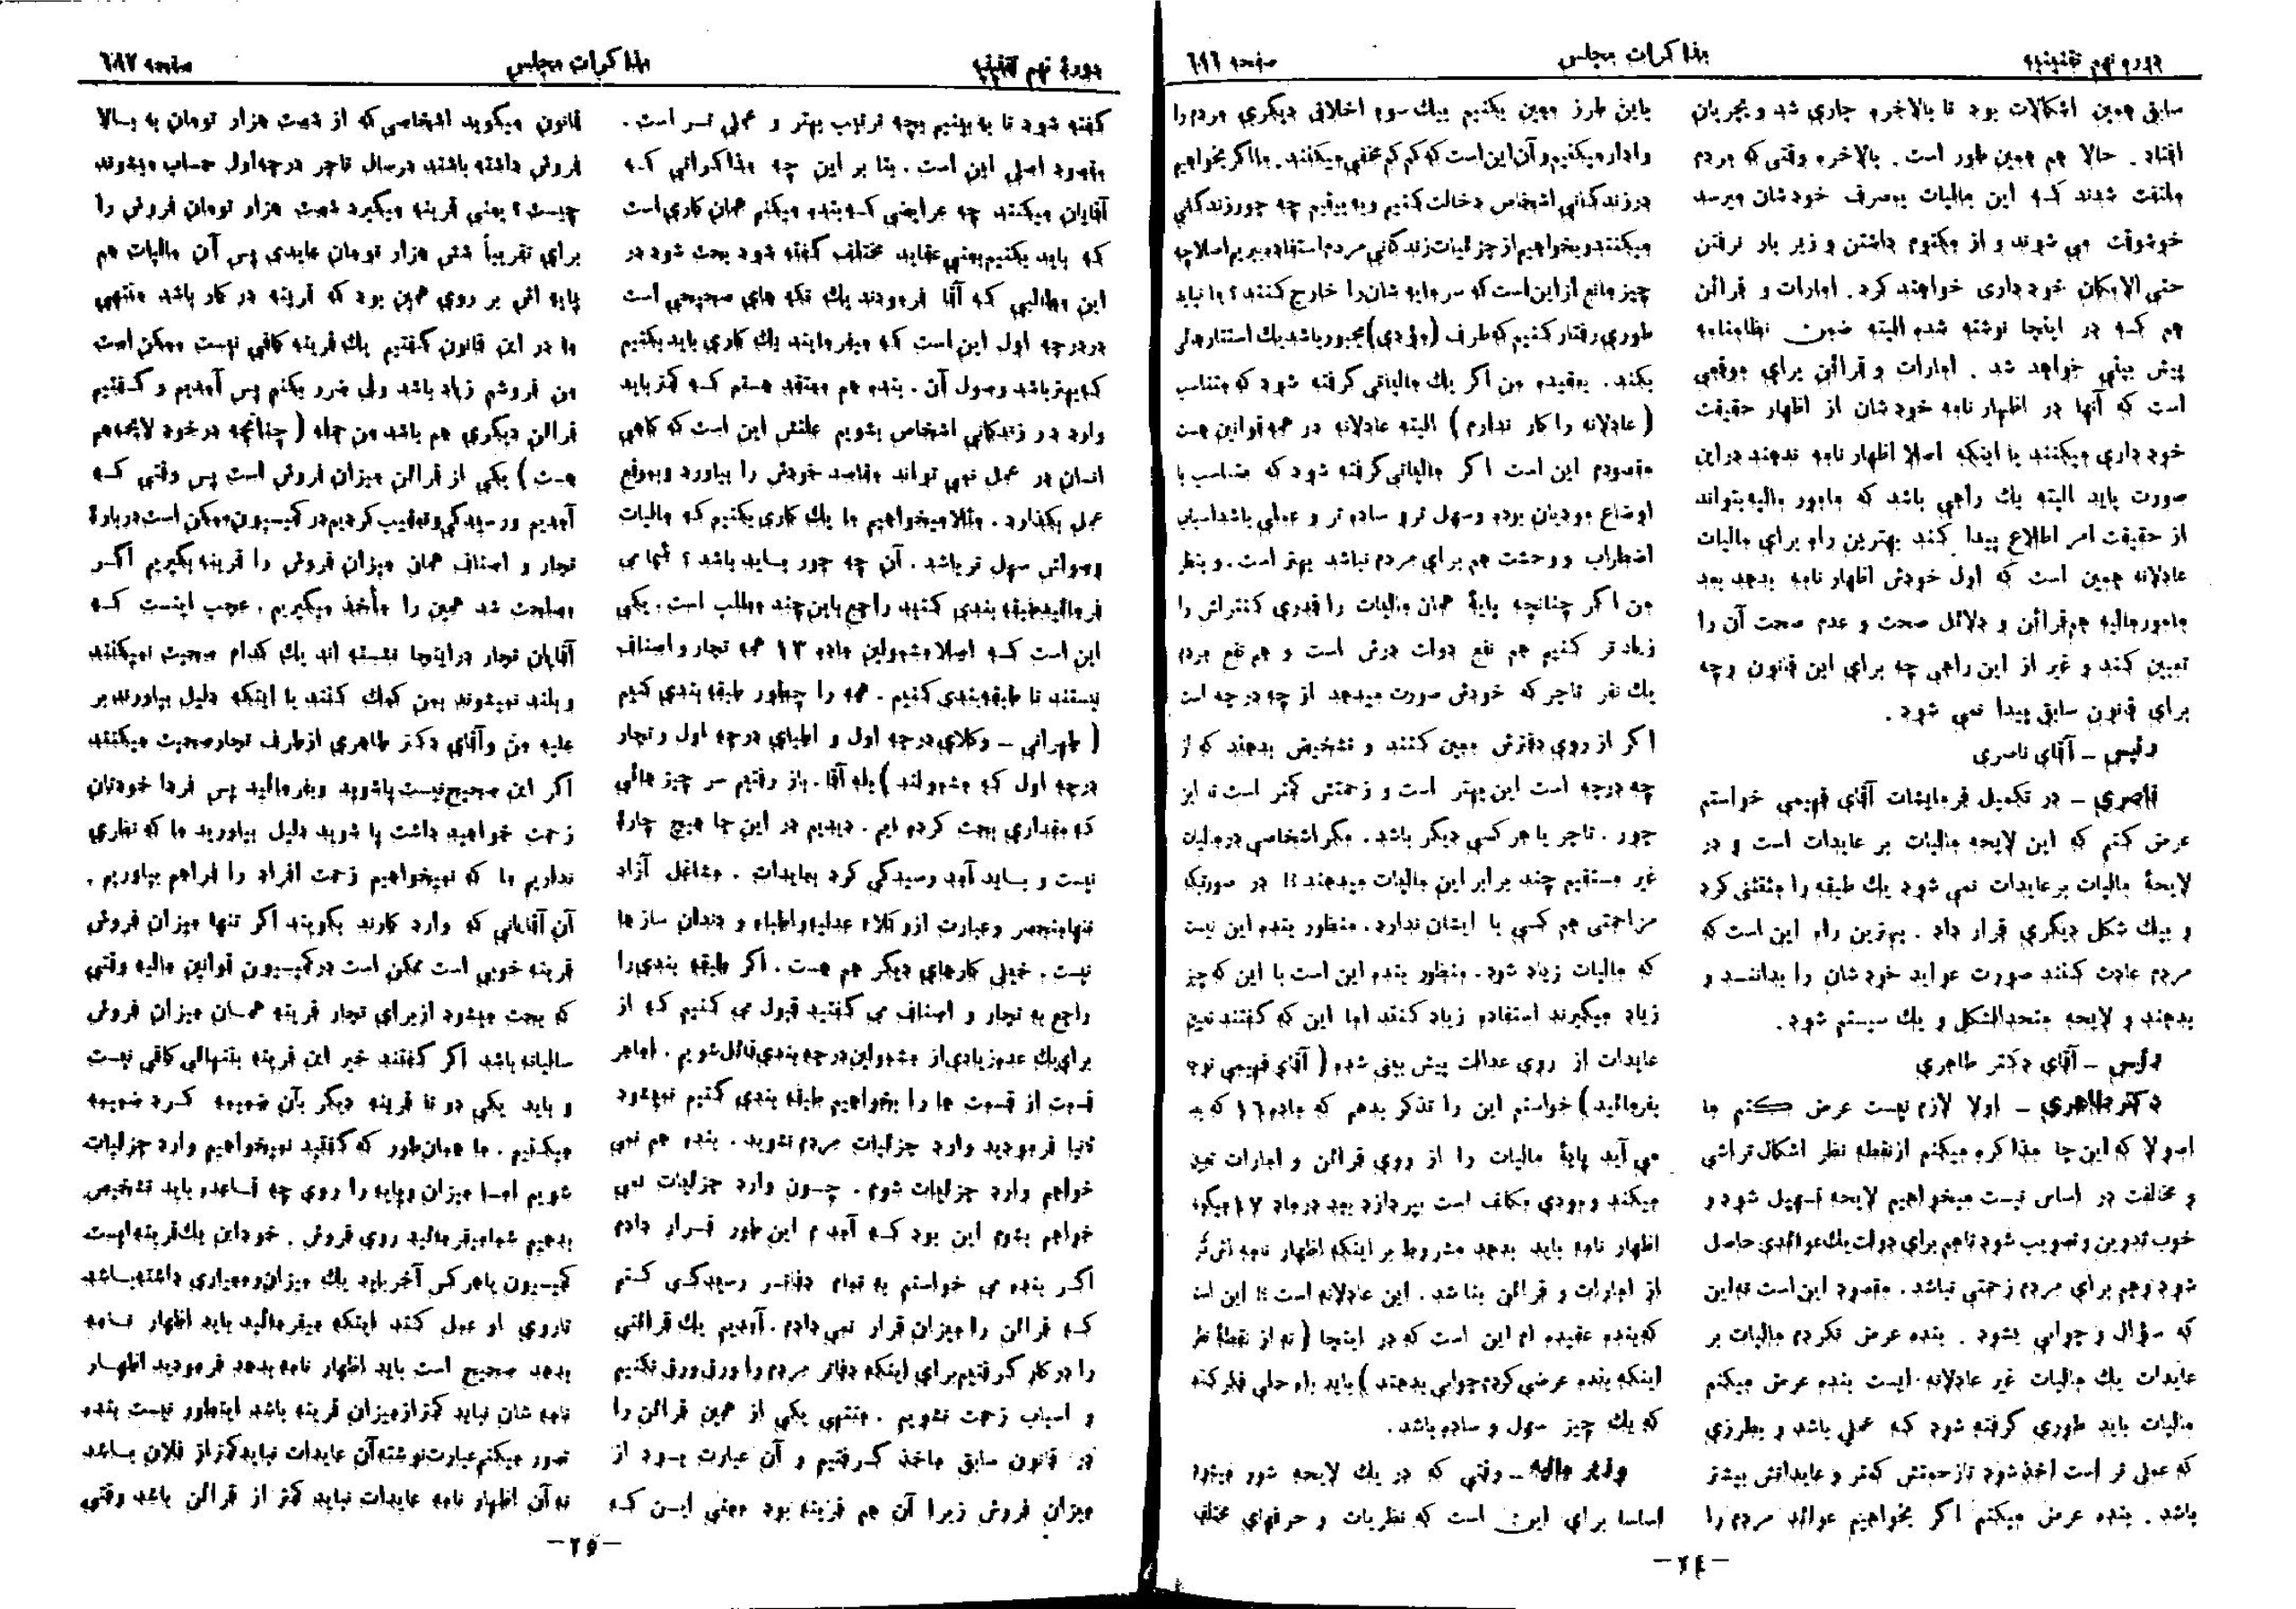 دوره نهم تقنینیه
مذاکرات مجلس
صفحه ٦٨٦
سابق همین اشکالات بود تا بالاخره جاری شد و بجریان
افتاد . حالا هم همین طور است . بالاخره وقتی که مردم
ملتفت شدند که این مالیات بمصرف خودشان میرسد
خوشوقت می شوند و از مکتوم داشتن و زیر بار نرفتن
حتی الامکان خود داری خواهند کرد . امارات و قرائن
هم که در اینجا نوشته شده البته ضمن نظامنامه
پیش بینی خواهد شد . امارات و قرائن برای موقعی
است که آنها در اظهار نامه خودشان از اظهار حقیقت
خود داری میکنند یا اینکه اصلا اظهار نامه ندهند در این
صورت باید البته یك راهی باشد که مامور مالیه بتواند
از حقیقت امر اطلاع پیدا کند بهترین راه برای مالیات
عادلانه همین است که اول خودش اظهار نامه بدهد بعد
مامور مالیه هم قرائن و دلائل صحت و عدم صحت آن را
تعیین کند و غیر از این راهی چه برای این قانون و چه
برای قانون سابق پیدا نمی شود .
رئیس ـ آقای ناصری
ناصری ـ در تکمیل فرمایشات آقای فهیمی خواستم
عرض کنم که این لایحه مالیات بر عایدات است و در
لایحهٔ مالیات بر عایدات نمی شود یك طبقه را مثتثنی کرد
و بیك شکل دیگری قرار داد . بهترین راه این است که
مردم عادت کنند صورت عواید خودشان را بدانند و
بدهند و لایحه متحدالشکل و یك سیستم شود .
رئیس ـ آقای دکتر طاهری
دکتر طاهری ـ اولا لازم نیست عرض کنم ما
اصولا که این جا مذاکره میکنم از نقطه نظر اشکال تراشی
و مخالفت در اساس نیست میخواهیم لایحه تسهیل شود و
خوب تدوین و تصویب شود تا هم برای دولت یك عوائدی حاصل
شود و هم برای مردم زحمتی نباشد . مقصود این است نه این
که سؤال و جوابی بشود . بنده عرض نکردم مالیات بر
عایدات یك مالیات غیر عادلانه ایست بنده عرض میکنم
مالیات باید طوری گرفته شود که عملی باشد و بطرزی
که عملی تر است اخذ شود تا زحمتش کمتر و عایداتش بیشتر
باشد . بنده عرض میکنم اگر بخواهیم عوائد مردم را
باین طرز معین بکنیم بیك سوء اخلاق دیگری مردم را
وادار میکنیم و آن این است که کم کم مخفی میکنند . ما اگر بخواهیم
در زندگانی اشخاص دخالت کنیم و به بینیم چه جور زندگانی
میکنند و بخواهیم از جزئیات زندگانی مردم استفاده ببریم اصلا چه
چیز مانع از این است که سرمایه شان را خارج کنند ؟ ما نباید
طوری رفتار کنیم که طرف (مؤدی) مجبور باشد یك استتارهائی
بکند . بعقیده من اگر یك مالیاتی گرفته شود که متناسب
(عادلانه را کار ندارم) البته عادلانه در همه قوانین هست
مقصودم این است اگر مالیاتی گرفته شود که متناسب با
اوضاع مودیان بوده و سهل تر و ساده تر و عملی باشد اسباب
اضطراب و وحشت هم برای مردم نباشد بهتر است . و بنظر
من اگر چنانچه پایهٔ همان مالیات را قدری کنترلش را
زیادتر کنیم هم نفع دولت درش است و هم نفع مردم
یك نفر تاجر که خودش صورت میدهد از چه درجه است
اگر از روی دفاترش معین کنند و تشخیص بدهند که از
چه درجه است این بهتر است و زحمتش کمتر است تا این
جور . تاجر یا هر کسی دیگر باشد . مگر اشخاصی در مالیات
غیر مستقیم چند برابر این مالیات میدهند !! در صورتیکه
مزاحمتی هم کسی با ایشان ندارد . منظور بنده این نیست
که مالیات زیاد شود . منظور بنده این است با این که جز
زیاد میگیرند استفاده زیاد کنند اما این که گفتند تعیین
عایدات از روی عدالت پیش بینی شده (آقای فهیمی توجه
بفرمائید) خواستم این را تذکر بدهم که ماده ١٦ که
می آید پایهٔ مالیات را از روی قرائن و امارات تعیین
میکند و مودی مکلف است بپردازد بعد در ماده ١٧ میگوید
اظهار نامه باید بدهد مشروط بر اینکه اظهار نامه اش
از امارات و قرائن بنا شد . این عادلانه است !! این است
که بنده عقیده ام این است که در اینجا (نه از نقطهٔ نظر
اینکه بنده عرضی کردم جوابی بدهند) باید راه حلی فکر کنند
که یك چیز سهل و ساده باشد .
وزیر مالیه ـ وقتی که در یك لایحه شور میشود
اساسا برای این است که نظریات و حرفهای مختلف
ـ ٢٤ ـ
دورهٔ نهم تقنینیه
مذاکرات مجلس
صفحه ٦٨٧
گفته شود تا به بینیم بچه ترتیب بهتر و عملی تر است .
مقصود اصلی این است . بنا بر این چه مذاکراتی که
آقایان میکنند چه عرایضی که بنده میکنم همان کاری است
که باید بکنیم یعنی عقاید مختلف گفته شود بحث شود در
این مطالبی که آقا فرمودند یك نکته های صحیحی است
در درجه اول این است که میفرمایند یك کاری باید بکنیم
که بهتر باشد وصول آن . بنده هم معتقد هستم که کمتر باید
وارد در زندگانی اشخاص بشویم علتش این است که گاهی
انسان در عمل نمی تواند مقاصد خودش را بیاورد و بموقع
عمل بگذارد . مثلا میخواهیم ما یك کاری بکنیم که مالیات
وصولش سهل تر باشد . آن چه جور باید باشد ؟ شما می
فرمائید طبقه بندی کنید راجع باین چند مطلب است . یکی
این است که اصلا مشمولین ماده ١٣ همه تجار و اصناف
نیستند تا طبقه بندی کنیم . همه را چطور طبقه بندی کنیم
(طهرانی ـ وکلای درجه اول و اطبای درجه اول و تجار
درجه اول که مشمولند) بله آقا . باز رفتیم سر چیزهائی
که مقداری بحث کرده ایم . دیدیم در این جا هیچ چارهٔ
نیست و باید آمد رسیدگی کرد بعایدات . مشاغل آزاد
تنها منحصر و عبارت از وکلاء عدلیه و اطباء و دندان سازها
نیست . خیلی کارهای دیگر هم هست . اگر طبقه بندی را
راجع به تجار و اصناف می گفتید قبول می کنیم که از
برای یك عده زیادی از مشمولین درجه بندی قائل شویم . اما هر
قسمت از قسمت ها را بخواهیم طبقه بندی کنیم نمیشود
ثانیا فرمودید وارد جزئیات مردم نشوید . بنده هم نمی
خواهم وارد جزئیات شوم . چون وارد جزئیات نمی
خواهم بشوم این بود که آمدم این طور قرار دادم
اگر بنده می خواستم به تمام دفاتر رسیدگی کنم
که قرائن را میزان قرار نمی دادم . آمدیم یك قرائنی
را در کار گرفتیم برای اینکه دفاتر مردم را ورق ورق نکنیم
و اسباب زحمت نشویم . منتهی یکی از همین قرائن را
در قانون سابق ماخذ گرفتیم و آن عبارت بود از
میزان فروش زیرا آن هم قرینه بود معنی این که
قانون میگوید اشخاصی که از شصت هزار تومان به بالا
فروش داشته باشند در سال تاجر درجه اول حساب میشوند
چیست ؟ یعنی قرینه میگیرد شصت هزار تومان فروش را
برای تقریباً شش هزار تومان عایدی پس آن مالیات هم
پایه اش بر روی همین بود که قرینه در کار باشد منتهی
ما در این قانون گفتیم یك قرینه کافی نیست ممکن است
من فروشم زیاد باشد ولی ضرر بکنم پس آمدیم و گفتیم
قرائن دیگری هم باشد من جمله (چنانچه در خود لایحه هم
هست) یکی از قرائن میزان فروش است پس وقتی که
آمدیم و رسیدگی و تعقیب کردیم در کمیسیون ممکن است دربارهٔ
تجار و اصناف همان میزان فروش را قرینه بگیریم اگر
مصلحت شد همین را مأخذ میگیریم . عجب اینست که
آقایان تجار در اینجا نشسته اند یك کدام صحبت نمیکنند
و بلند نمیشوند بمن کمك کنند یا اینکه دلیل بیاورند بر
علیه من و آقای دکتر طاهری از طرف تجار صحبت میکنند
اگر این صحیح نیست پاشوید و بفرمائید پس فردا خودتان
زحمت خواهید داشت پا شوید دلیل بیاورید ما که نظری
نداریم ما که نمیخواهیم زحمت افراد را فراهم بیاوریم .
آن آقایانی که وارد کارند بگویند اگر تنها میزان فروش
قرینه خوبی است ممکن است در کمیسیون قوانین مالیه وقتی
که بحث میشود از برای تجار قرینه همان میزان فروش
سالیانه باشد اگر گفتند خیر این قرینه بتنهائی کافی نیست
و باید یکی دو تا قرینه دیگر بآن ضمیمه کرد ضمیمه
میکنیم . ما همان طور که گفتید نمیخواهیم وارد جزئیات
شویم اما میزان و پایه را روی چه قاعده باید تشخیص
بدهیم شما میفرمائید روی فروش . خود این یك قرینه ایست
کمیسیون یا هر کس آخر باید یك میزان و معیاری داشته باشد
تا روی او عمل کند اینکه میفرمائید باید اظهار نامه
بدهد صحیح است باید اظهار نامه بدهد فرمودید اظهار
نامه شان نباید کمتر از میزان قرینه باشد اینطور نیست بنده
تصور میکنم عبارت نوشته آن عایدات نباید کمتر از فلان باشد
نه آن اظهار نامه عایدات نباید کمتر از قرائن باشد وقتی
ـ ٢٥ ـ